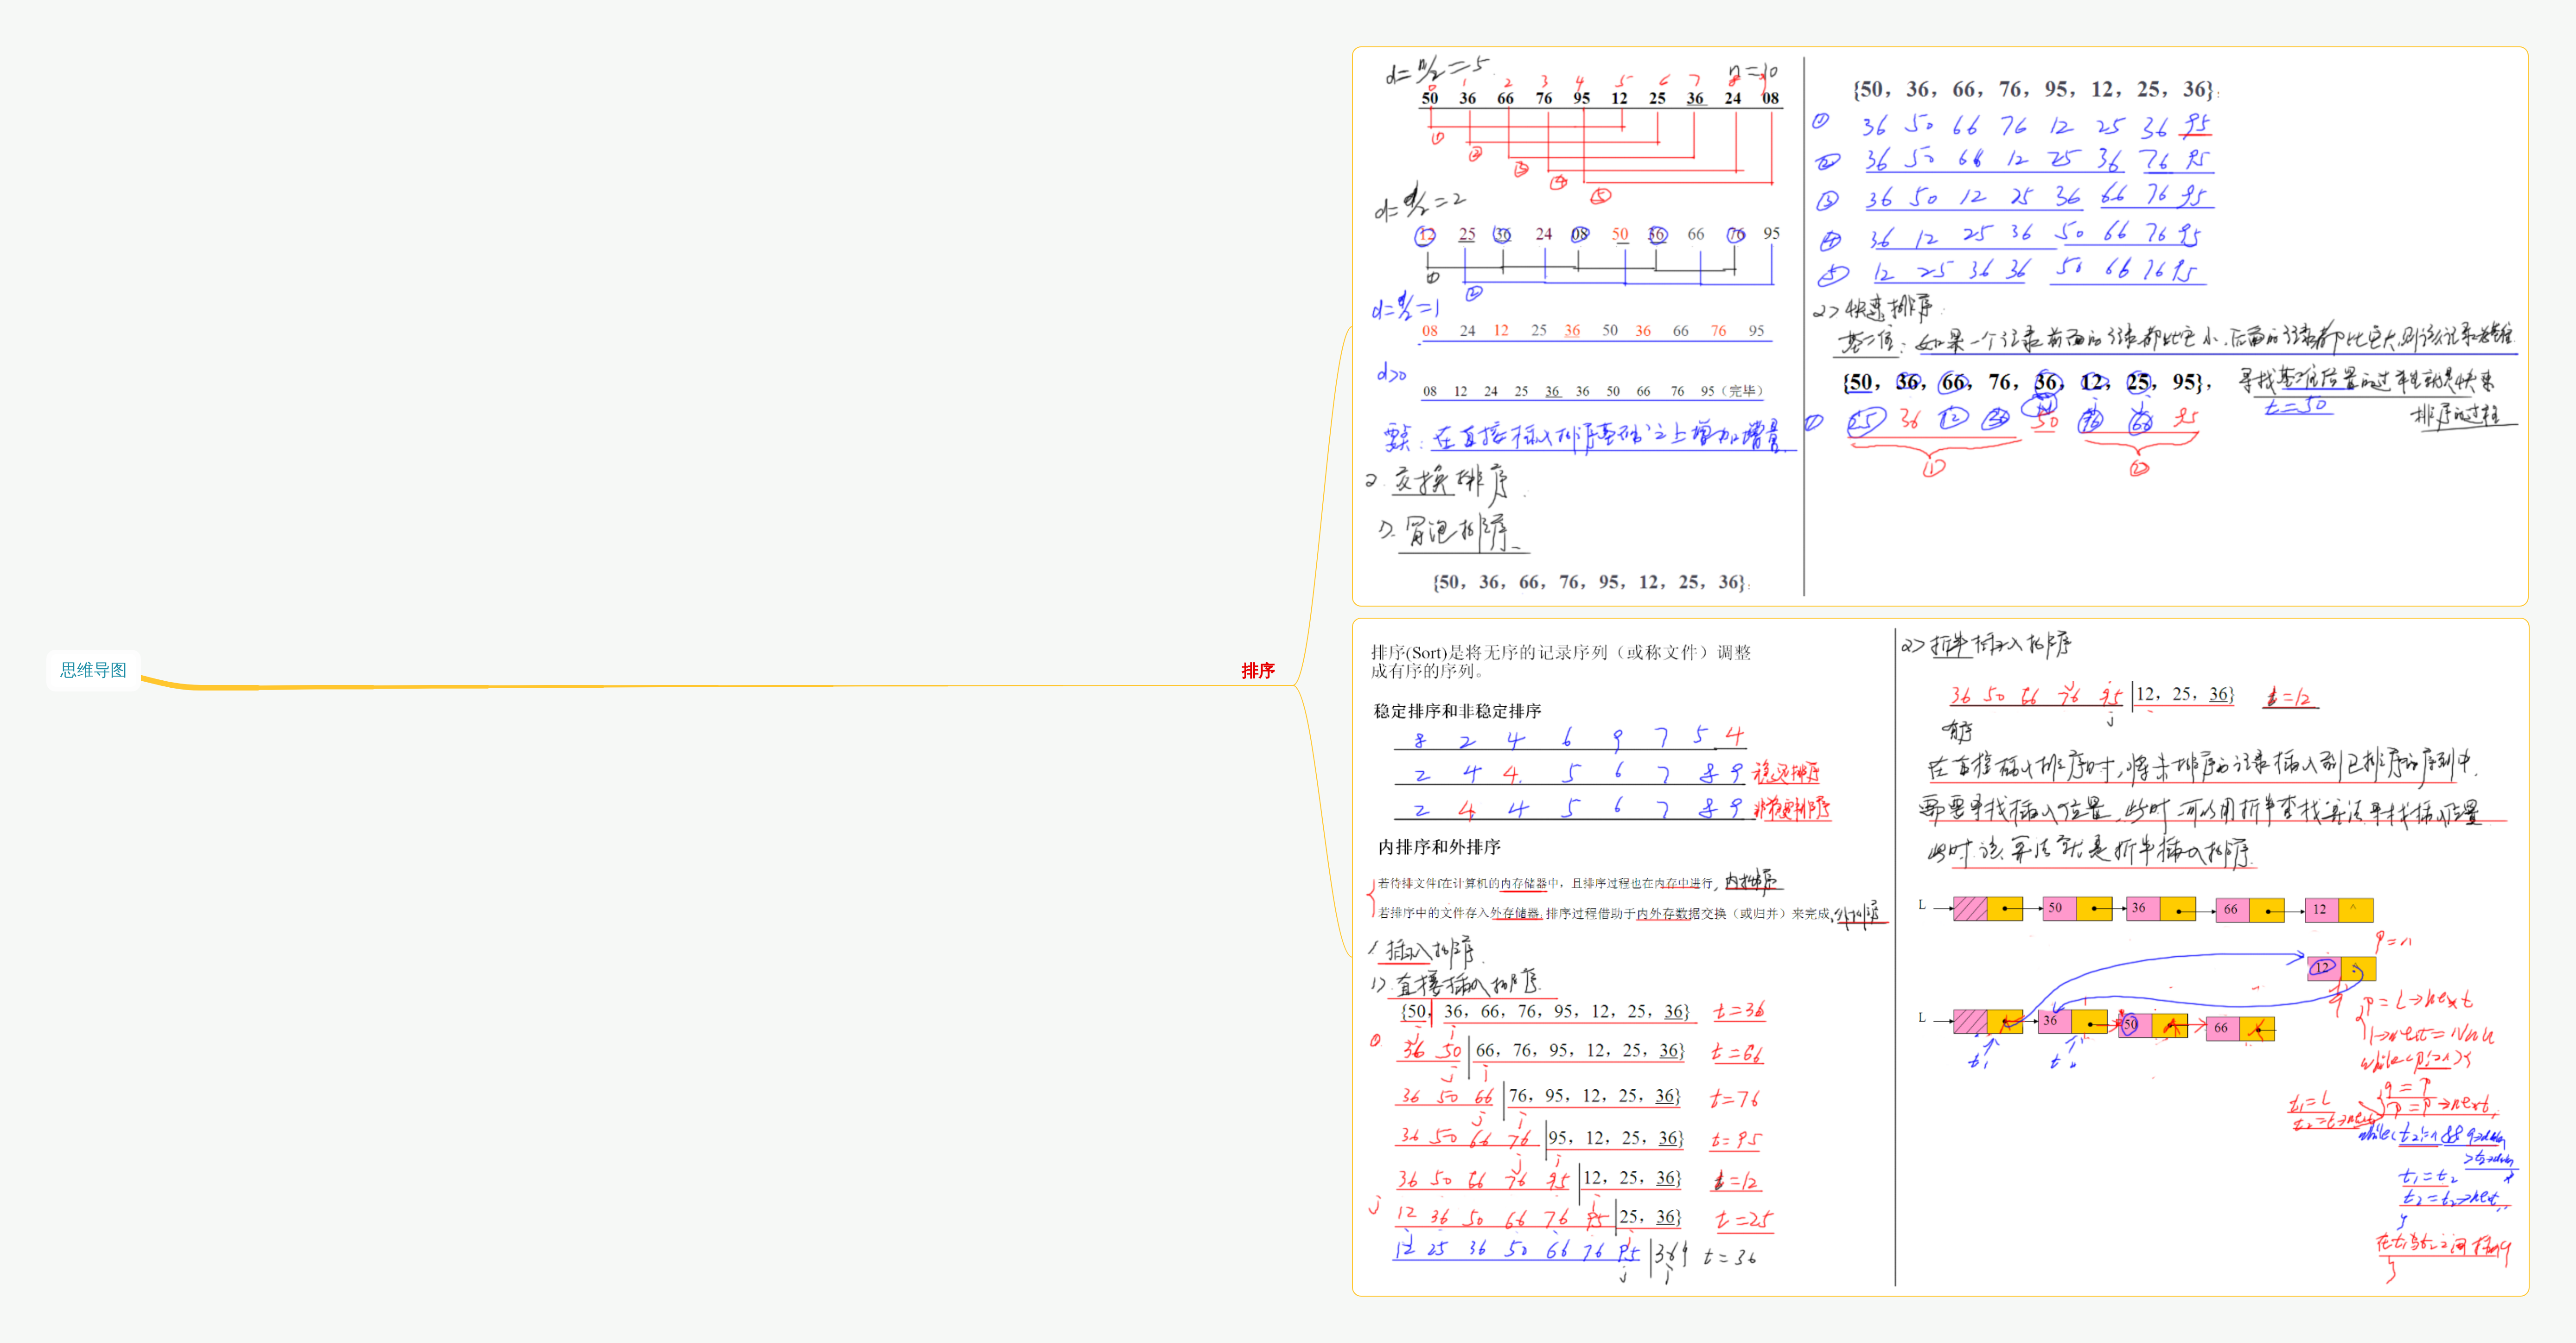 思维导图
排序
d=n/2=5
n=10
0 1 2 3 4 5 6 7 8 9
50 36 66 76 95 12 25 36 24 08
① ② ③ ④ ⑤
d=d/2=2
12 25 36 24 08 50 36 66 76 95
① ②
d=d/2=1
08 24 12 25 36 50 36 66 76 95
d>0
08 12 24 25 36 36 50 66 76 95（完毕）
要点：在直接插入排序基础之上增加增量
2. 交换排序
1>. 冒泡排序
{50, 36, 66, 76, 95, 12, 25, 36};
{50, 36, 66, 76, 95, 12, 25, 36};
① 36 50 66 76 12 25 36 95
② 36 50 66 12 25 36 76 95
③ 36 50 12 25 36 66 76 95
④ 36 12 25 36 50 66 76 95
⑤ 12 25 36 36 50 66 76 95
2> 快速排序
基准值：如果一个记录前面的记录都比它小，后面的记录都比它大，则该记录
{50, 36, 66, 76, 36, 12, 25, 95},
寻找基准位置的过程就是快速
排序的过程
t=50
① 25 36 12 36 50 76 66 95
① ②
排序(Sort)是将无序的记录序列（或称文件）调整
成有序的序列。
稳定排序和非稳定排序
8 2 4 6 9 7 5 4
2 4 4 5 6 7 8 9 稳定排序
2 4 4 5 6 7 8 9 非稳定排序
内排序和外排序
若待排文件在计算机的内存储器中，且排序过程也在内存中进行，内排序
若排序中的文件存入外存储器，排序过程借助于内外存数据交换（或归并）来完成，外排序
1. 插入排序
1>. 直接插入排序
{50, 36, 66, 76, 95, 12, 25, 36} t=36
j i
① 36 50 | 66, 76, 95, 12, 25, 36} t=66
j i
36 50 66 | 76, 95, 12, 25, 36} t=76
j i
36 50 66 76 | 95, 12, 25, 36} t=95
j i
36 50 66 76 95 | 12, 25, 36} t=12
j i
12 36 50 66 76 95 | 25, 36} t=25
j i
12 25 36 50 66 76 95 | 36} t=36
j i
2> 折半插入排序
36 50 66 76 95 | 12, 25, 36} t=12
j
有序
在直接插入排序时，将未排序的记录插入到已排序的序列中，
需要寻找插入位置，此时可以用折半查找算法寻找插入位置
此时该算法就是折半插入排序
L 50 36 66 12 ^
p=^
12
q
L 36 50 66
t1 t2
p=L->next
L->next=Null
while(p!=^){
q=p
p=p->next,
t1=L
while(t2!=^ && q->data
>t2->data)
t1=t2
t2=t2->next,
}
在t1与t2之间插q
}